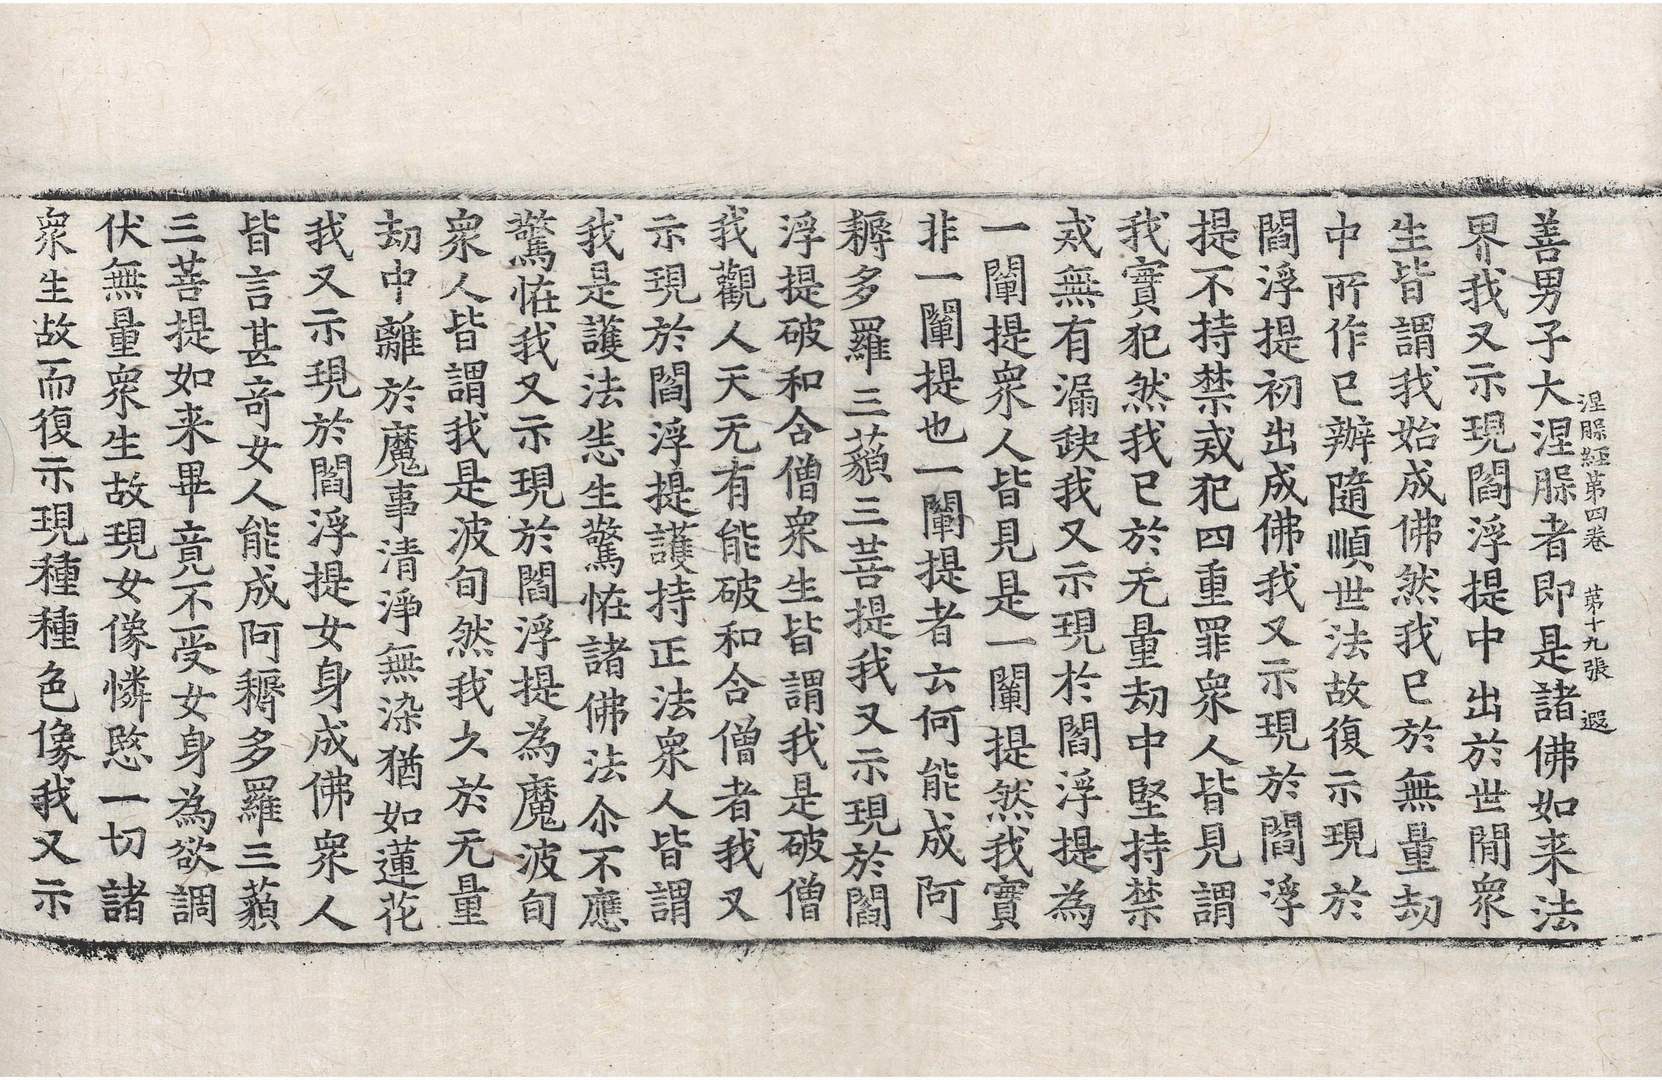 涅槃經第四卷 第十九張 遐
善男子大涅槃者即是諸佛如来法
界我又示現閻浮提中出於世閒衆
生皆謂我始成佛然我已於無量劫
中所作已辦隨順世法故復示現於
閻浮提初出成佛我又示現於閻浮
提不持禁戒犯四重罪衆人皆見謂
我實犯然我已於无量劫中堅持禁
戒無有漏缺我又示現於閻浮提為
一闡提衆人皆見是一闡提然我實
非一闡提也一闡提者云何能成阿
耨多羅三藐三菩提我又示現於閻
浮提破和合僧衆生皆謂我是破僧
我觀人天无有能破和合僧者我又
示現於閻浮提護持正法衆人皆謂
我是護法悉生驚恠諸佛法尒不應
驚恠我又示現於閻浮提為魔波旬
衆人皆謂我是波旬然我久於无量
劫中離於魔事清淨無染猶如蓮花
我又示現於閻浮提女身成佛衆人
皆言甚奇女人能成阿耨多羅三藐
三菩提如来畢竟不受女身為欲調
伏無量衆生故現女像憐愍一切諸
衆生故而復示現種種色像我又示